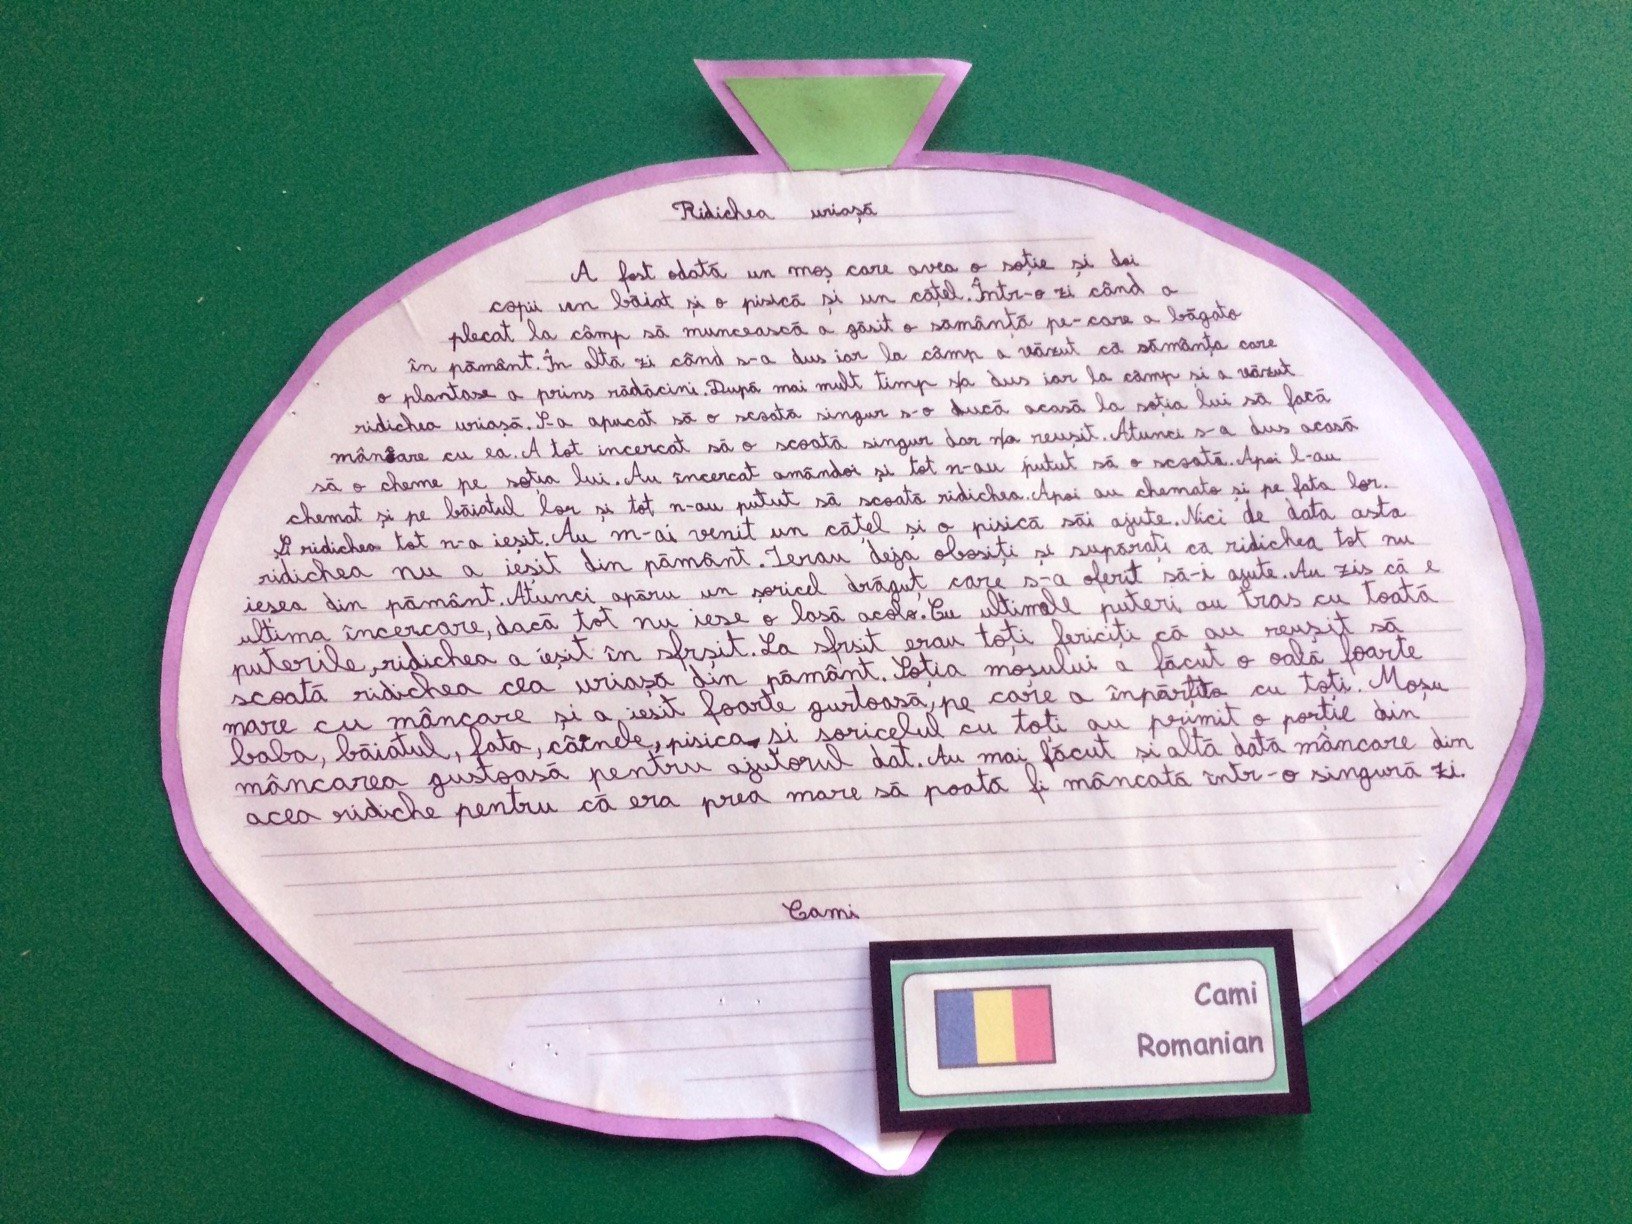 Ridichea uriașă
A fost odată un moș care avea o soție și doi
copii un băiat și o pisică și un cățel. Într-o zi când a
plecat la câmp să muncească a găsit o sămânță pe-care a băgato
în pământ. În altă zi când s-a dus iar la câmp a văzut că sămânța care
o plantase a prins rădăcini. După mai mult timp s-a dus iar la câmp și a văzut
ridichea uriașă. S-a apucat să o scoată singur s-o ducă acasă la soția lui să facă
mâncare cu ea. A tot incercat să o scoată singur dar n-a reușit. Atunci s-a dus acasă
să o cheme pe soția lui. Au încercat amândoi și tot n-au putut să o scoată. Apoi l-au
chemat și pe băiatul lor și tot n-au putut să scoată ridichea. Apoi au chemato și pe fata lor.
Și ridichea tot n-a ieșit. Au m-ai venit un cățel și o pisică săi ajute. Nici de data asta
ridichea nu a ieșit din pământ. Ierau deja obosiți și supărați că ridichea tot nu
iesea din pământ. Atunci apăru un șoricel drăguț care s-a oferit să-i ajute. Au zis că e
ultima încercare, dacă tot nu iese o lasă acolo. Cu ultimele puteri au tras cu toată
puterile, ridichea a ieșit în sfrșit. La sfrsit erau toți fericiți că au reușit să
scoată ridichea cea uriașă din pământ. Soția moșului a făcut o oală foarte
mare cu mâncare și a ieșit foarte gustoasă, pe care a înpărțito cu toți. Moșu
baba, băiatul, fata, câinele, pisica și soricelul cu toți au primit o porție din
mâncarea gustoasă pentru ajutorul dat. Au mai făcut și altă dată mâncare din
acea ridiche pentru că era prea mare să poată fi mâncată într-o singură zi.
Cami
Cami
Romanian